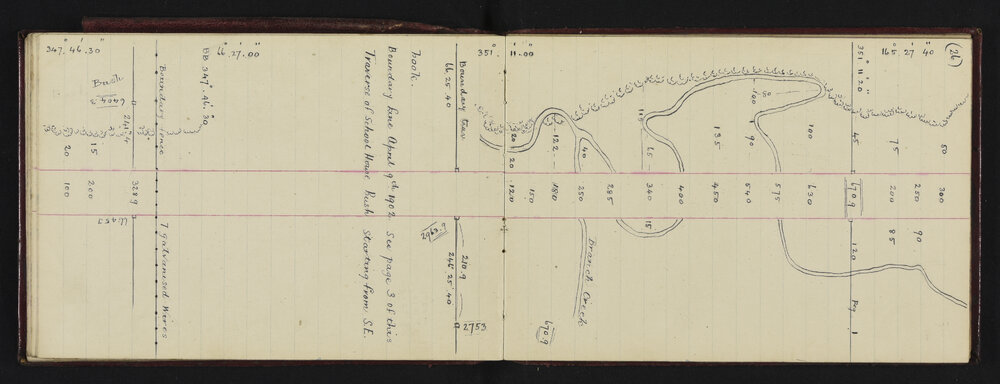 (26)
165° 27' 40"
50
75
300
250
200
90
85
351° 11' 20"
45
670.9
120
Peg 1
100
630
575
80
100
90
540
135
450
400
11
65
340
15
285
40
250
Branch Creek
122
180
150
20
20
120
670.9
351° 11' 00"
Boundary trav
66. 25. 40
210.9
246. 25' 40
2753
2962.9
book.
Boundary line April 9th 1902. See page 3 of this
Traverse of School House Bush starting from S.E.
66° 27' 00"
BB 347° 46' 30"
Boundary fence
7 galvanised Wires
347° 46' 30"
Bush
3289
15
200
20
100